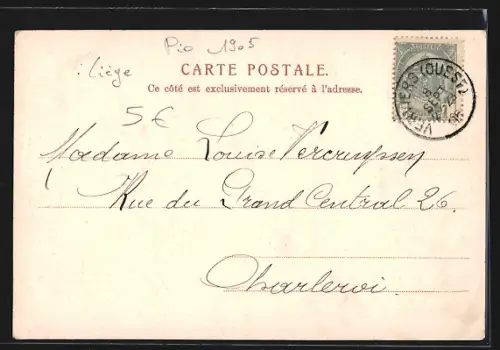 Pio 1905
Liège
CARTE POSTALE.
Ce côté est exclusivement réservé à l'adresse.
5€
VERVIERS (OUEST)
Madame Louise Vercruyssen
Rue du Grand Central 26.
Charleroi.